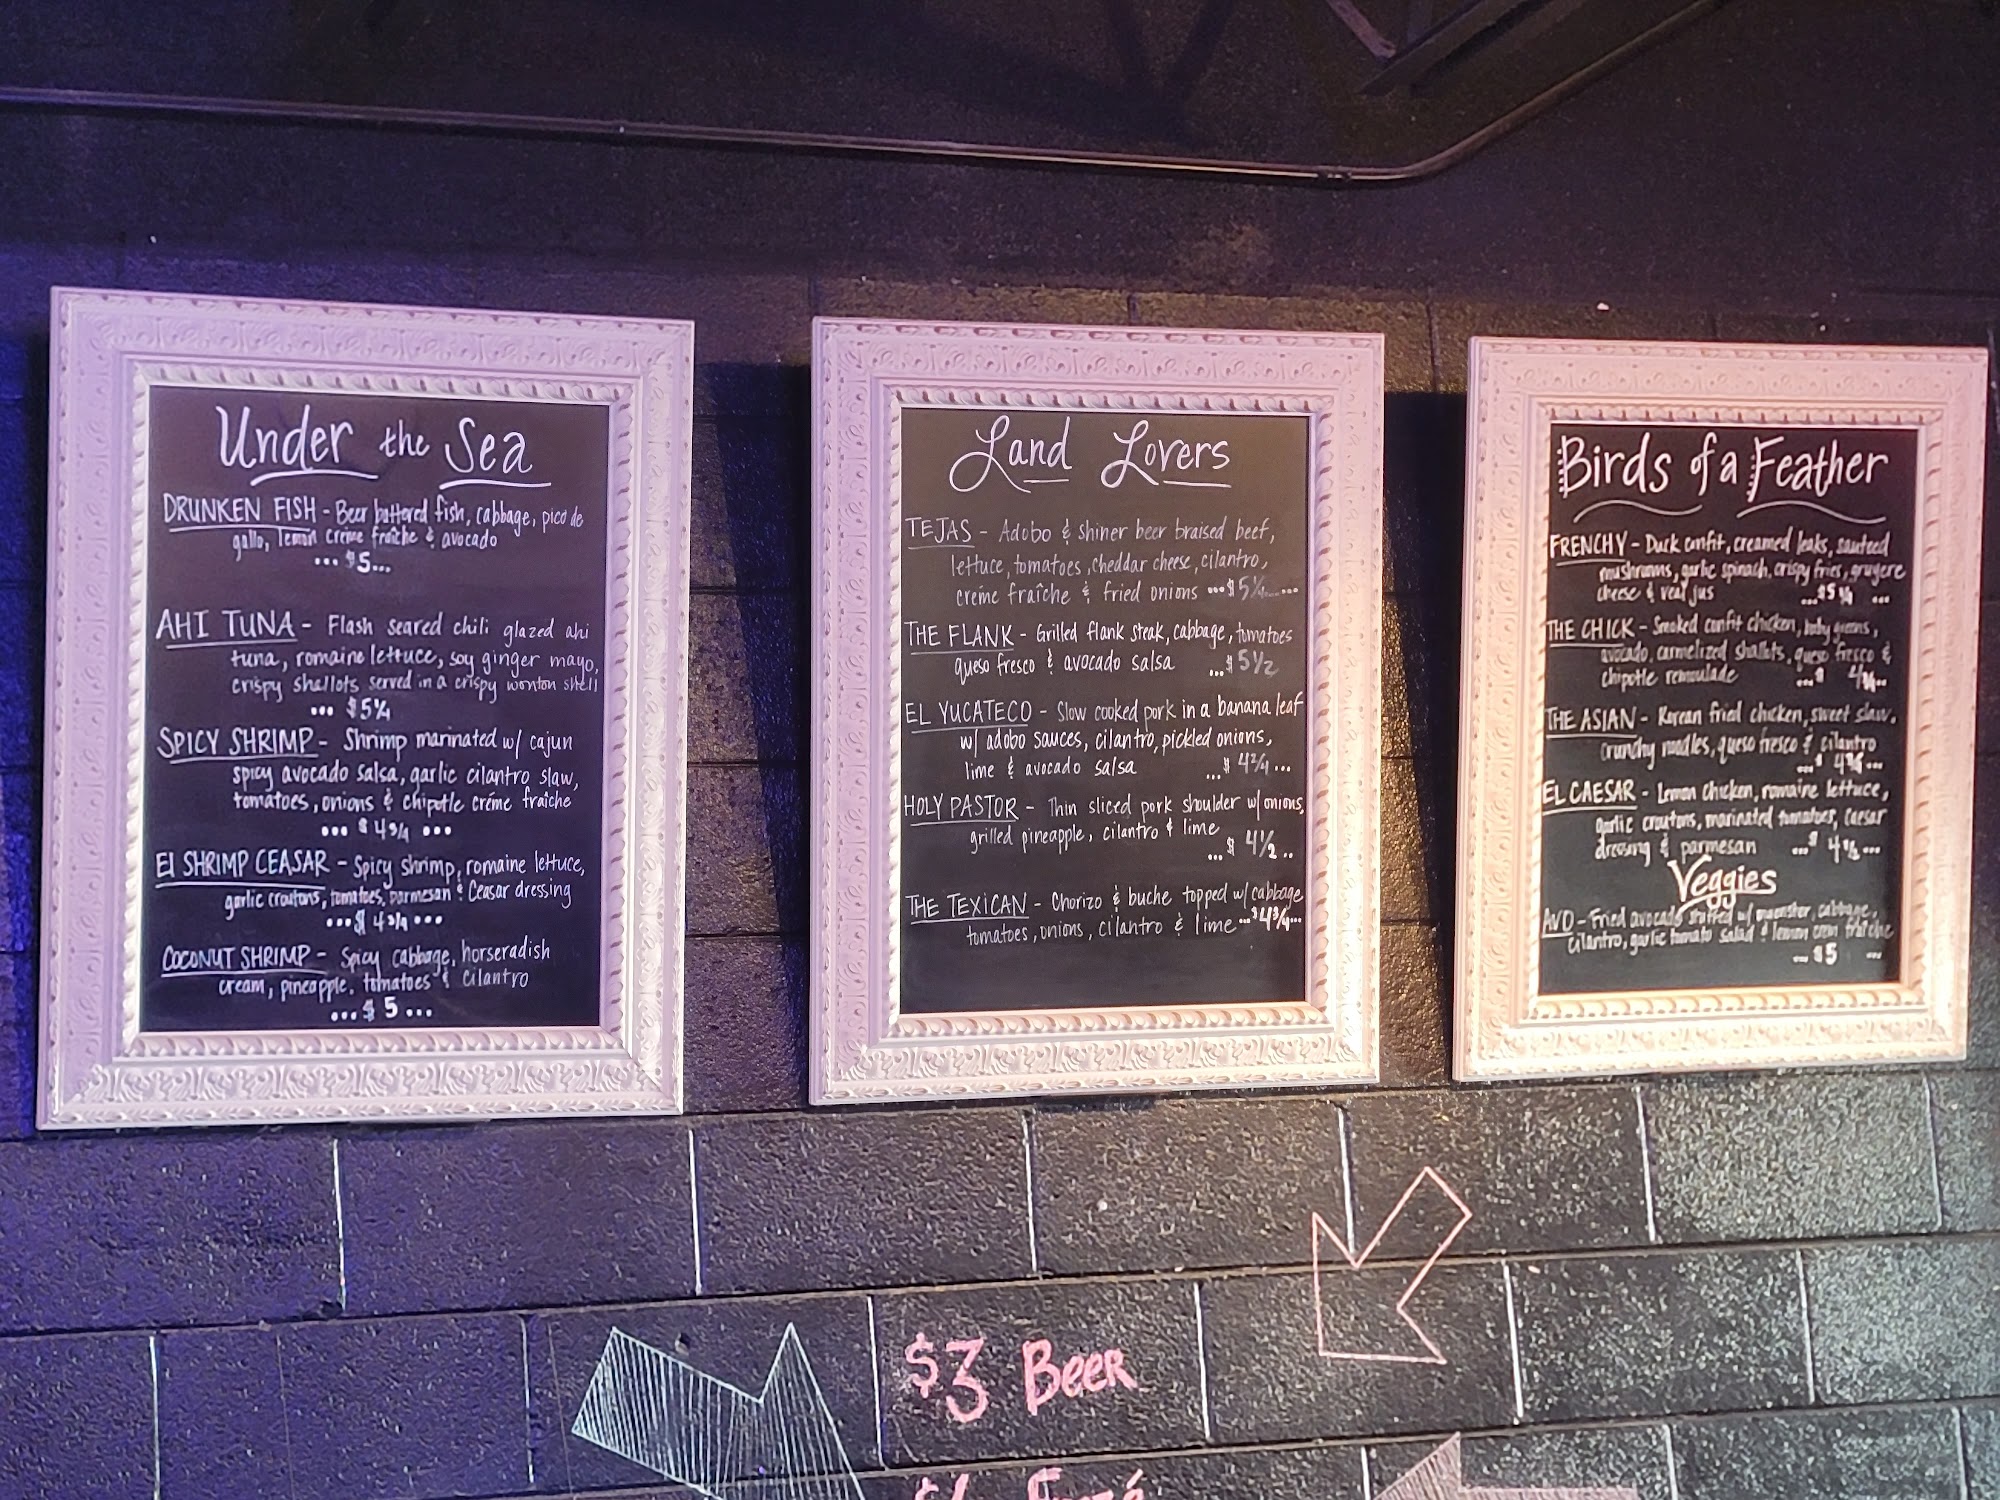 Under the Sea
DRUNKEN FISH - Beer battered fish, cabbage, pico de
gallo, lemon créme fraîche & avocado
... $5...
AHI TUNA - Flash seared chili glazed ahi
tuna, romaine lettuce, soy ginger mayo,
crispy shallots served in a crispy wonton shell
... $5¼
SPICY SHRIMP - Shrimp marinated w/ cajun
spicy avocado salsa, garlic cilantro slaw,
tomatoes, onions & chipotle créme fraîche
... $4¾ ...
El SHRIMP CEASAR - Spicy shrimp, romaine lettuce,
garlic croutons, tomatoes, parmesan & Ceasar dressing
...$ 4¾ ...
COCONUT SHRIMP - Spicy cabbage, horseradish
cream, pineapple, tomatoes & cilantro
...$ 5 ...
Land Lovers
TEJAS - Adobo & shiner beer braised beef,
lettuce, tomatoes, cheddar cheese, cilantro,
créme fraîche & fried onions ...$5¼......
THE FLANK - Grilled flank steak, cabbage, tomatoes
queso fresco & avocado salsa ...$5½
EL YUCATECO - Slow cooked pork in a banana leaf
w/ adobo sauces, cilantro, pickled onions,
lime & avocado salsa ...$ 4¾ ...
HOLY PASTOR - Thin sliced pork shoulder w/ onions,
grilled pineapple, cilantro & lime
...$ 4½ ..
THE TEXICAN - Chorizo & buche topped w/ cabbage
tomatoes, onions, cilantro & lime ...$4¾...
Birds of a Feather
FRENCHY - Duck confit, creamed leaks, sauteed
mushrooms, garlic spinach, crispy fries, gruyere
cheese & veal jus ...$5 ¼ ...
THE CHICK - Smoked confit chicken, baby greens,
avocado, carmelized shallots, queso fresco &
chipotle remoulade ...$
THE ASIAN - Korean fried chicken, sweet slaw,
crunchy noodles, queso fresco & cilantro
...$
EL CAESAR - Lemon chicken, romaine lettuce,
garlic croutons, marinated tomatoes, caesar
dressing & parmesan ...$ 4½ ...
Veggies
AVO - Fried avocado stuffed w/ muenster, cabbage,
cilantro, garlic tomato salad & lemon crem fraîche
... $5 ...
$3 Beer